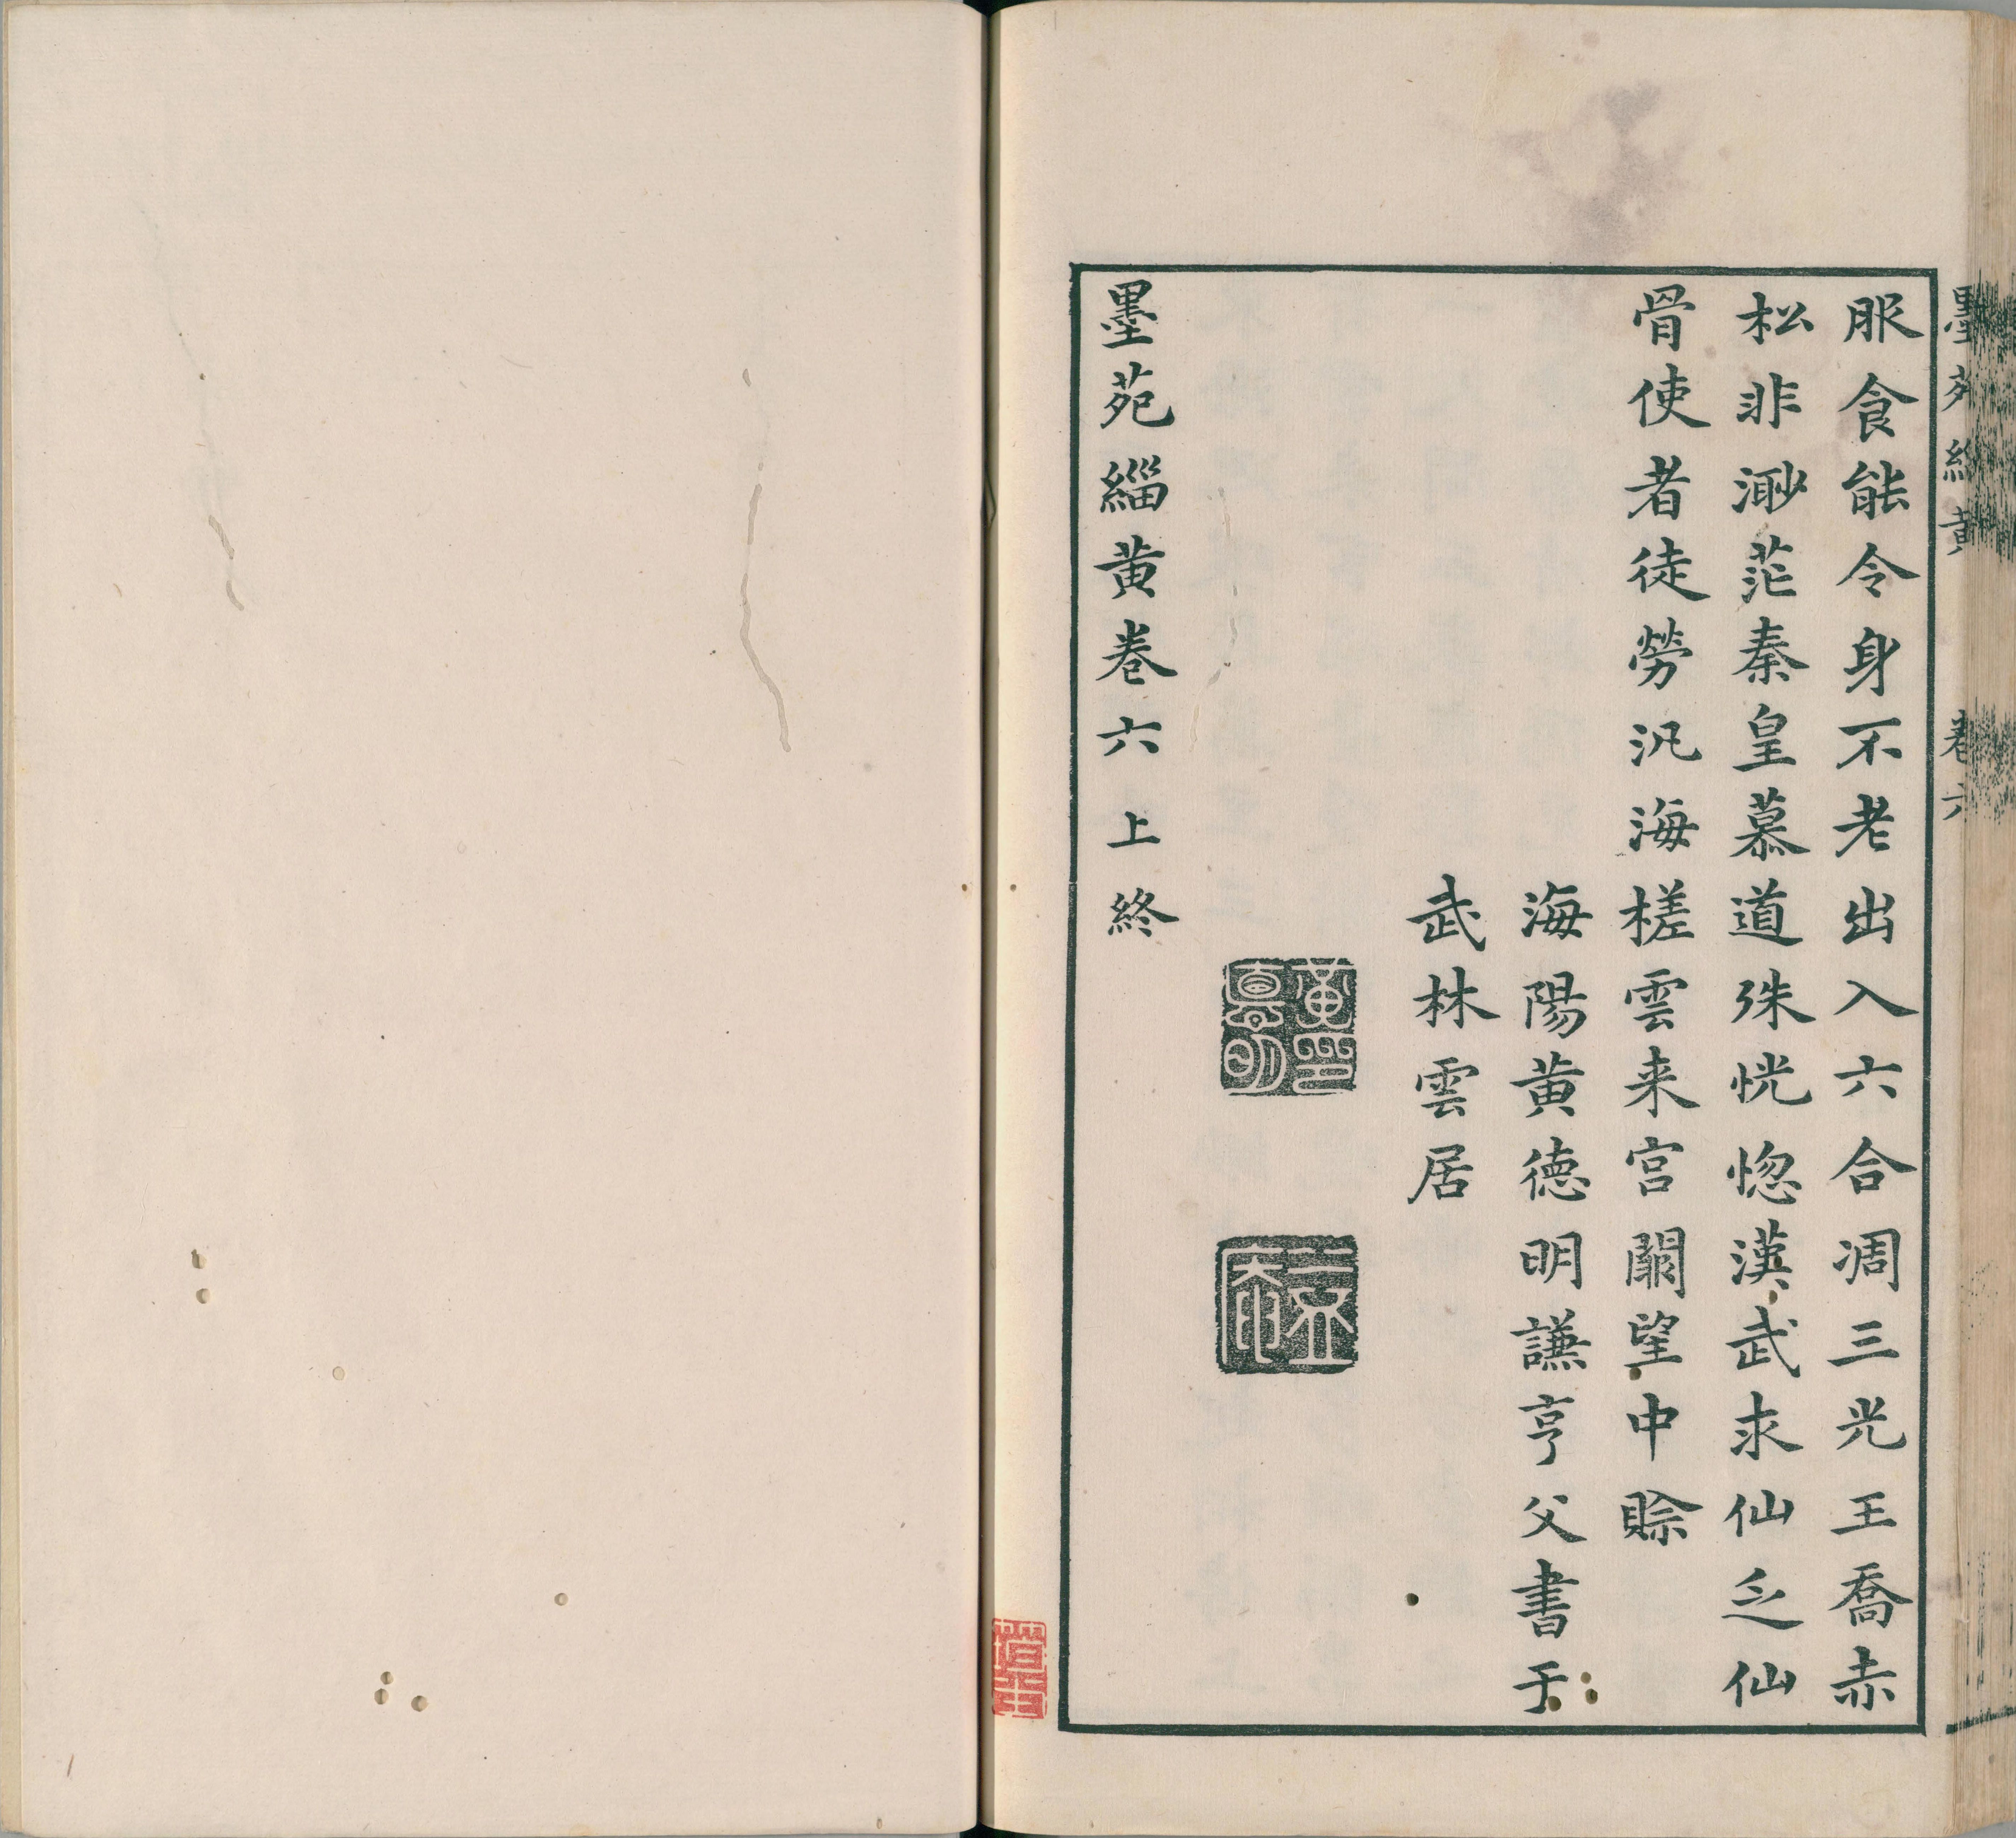 服食能令身不老出入六合凋三光王喬赤
松非渺茫秦皇慕道殊恍惚漢武求仙乏仙
骨使者徒勞汎海槎雲来宫闕望中賒
海陽黄德明謙亨父書于
武林雲居
墨苑緇黄卷六上終